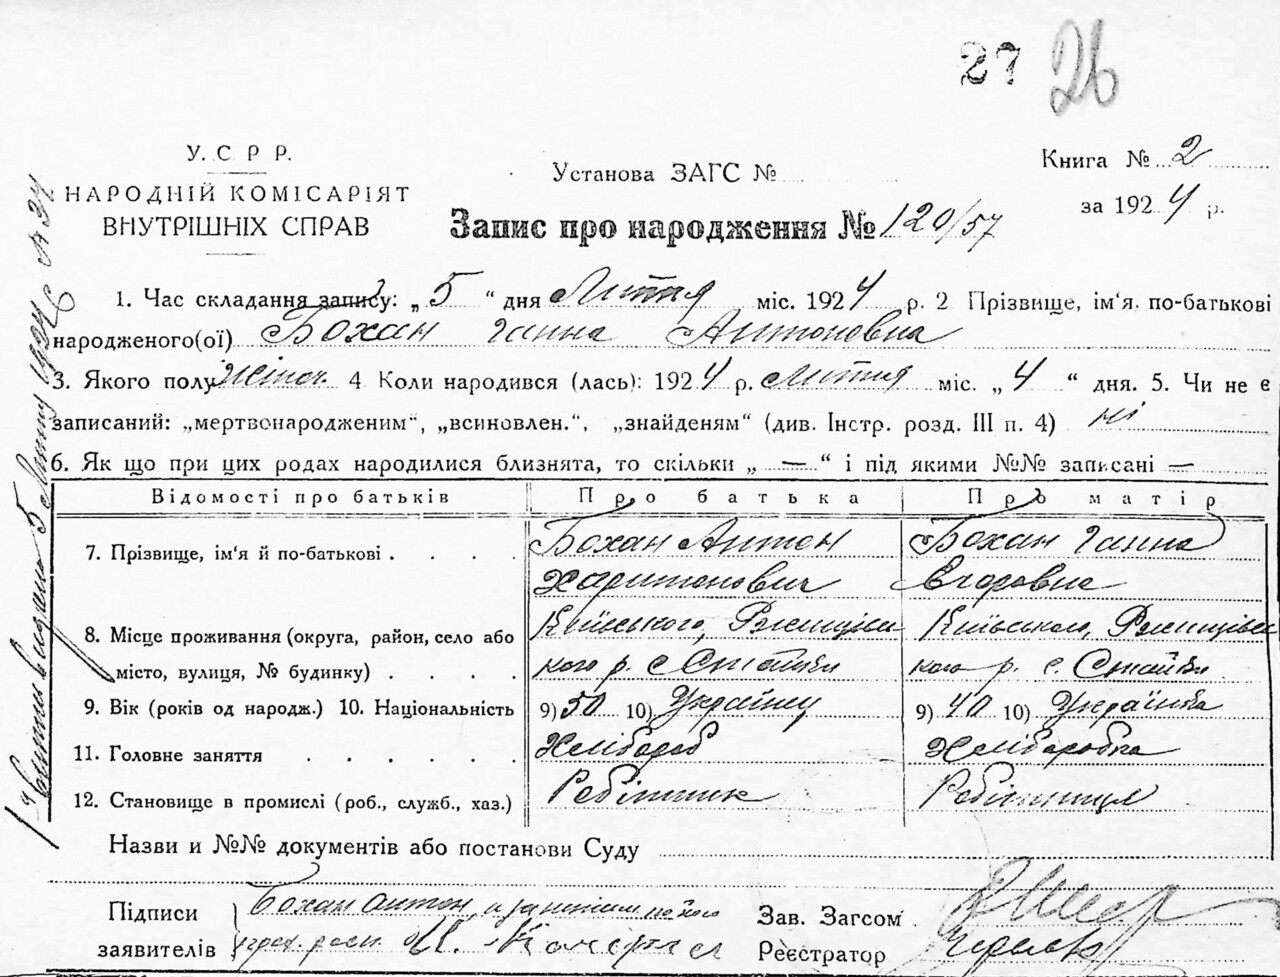 27 26
У. С Р Р.
НАРОДНІЙ КОМІСАРІЯТ
ВНУТРІШНІХ СПРАВ
Установа ЗАГС №
Книга № 2
за 1924 р.
Запис про народження № 120/57
1. Час складання запису: „ 5 “ дня Лютня міс. 1924 р. 2 Прізвище, ім'я, по-батькові
народженого(ої) Бохан Ганна Антоновна
3. Якого полу жіноч. 4 Коли народився (лась): 1924 р. Лютня міс. „ 4 “ дня. 5. Чи не є
записаний: „мертвонародженим“, „всиновлен.“, „знайденям“ (див. Інстр. розд. III п. 4) ні
6. Як що при цих родах народилися близнята, то скільки „ — “ і під якими №№ записані —
Відомості про батьків Про батька Про матір
7. Прізвище, ім'я й по-батькові . . . . Бохан Антон Бохан Ганна
Харитонович Єгоровна
8. Місце проживання (округа, район, село або Київського, Ржищівсь Київського, Ржищівсь
місто, вулиця, № будинку) . . . . кого р. с Стайки кого р. с. Стайки
9. Вік (років од народж.) 10. Національність 9) 50 10) Українец 9) 40 10) Українка
11. Головне заняття . . . . . . Хлібороб Хліборобка
12. Становище в промислі (роб., служб., хаз.) Робітник Робітниця
Назви и №№ документів або постанови Суду
Підписи Бохан Антон, Зав. Загсом
заявителів Реєстратор